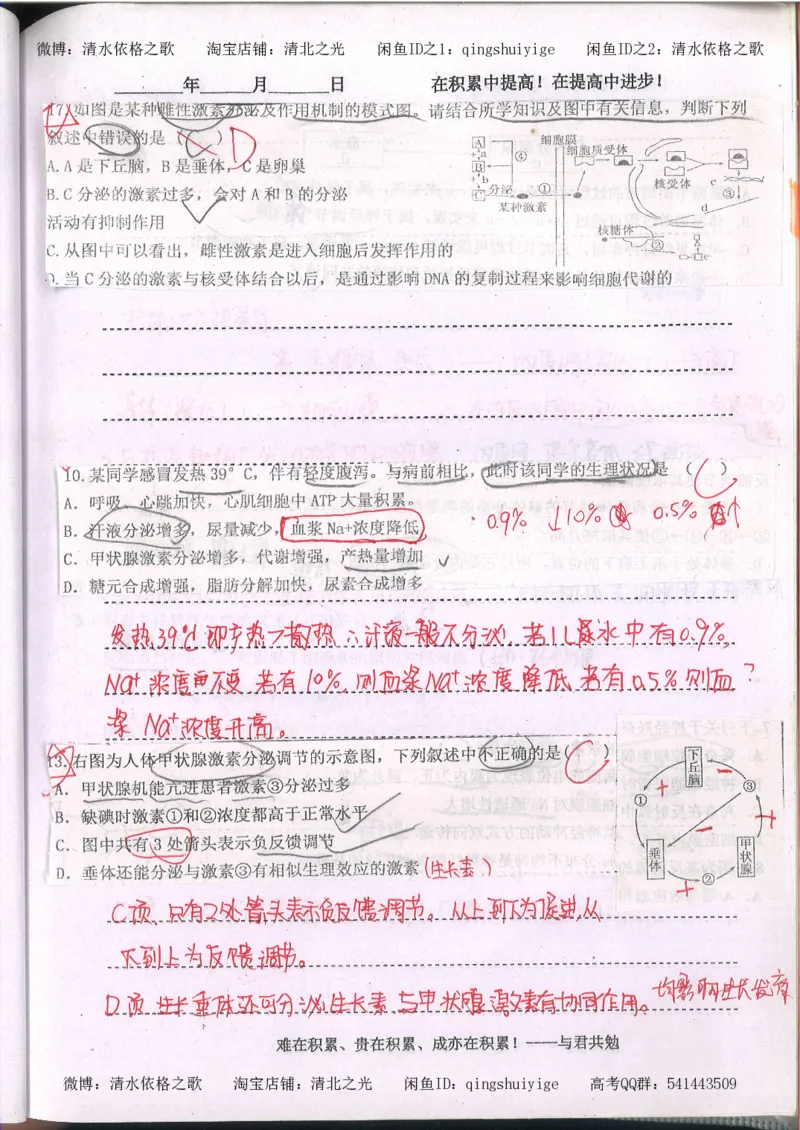 微博：清水依格之歌 淘宝店铺：清北之光 闲鱼ID之1：qingshuiyige 闲鱼ID之2：清水依格之歌
年 月 日 在积累中提高！在提高中进步！
17.如图是某种雌性激素分泌及作用机制的模式图。请结合所学知识及图中有关信息，判断下列
叙述中错误的是（ ） D
A.A是下丘脑，B是垂体，C是卵巢
B.C分泌的激素过多，会对A和B的分泌
活动有抑制作用
C.从图中可以看出，雌性激素是进入细胞后发挥作用的
D.当C分泌的激素与核受体结合以后，是通过影响DNA的复制过程来影响细胞代谢的
细胞膜
细胞质受体
A
a
B
b
C
④
分泌
①
某种激素
核受体
c
③
d
核糖体
②
e
10.某同学感冒发热39°C，伴有轻度腹泻。与病前相比，此时该同学的生理状况是（ C ）
A．呼吸、心跳加快，心肌细胞中ATP大量积累。
B．汗液分泌增多，尿量减少，血浆Na+浓度降低
C．甲状腺激素分泌增多，代谢增强，产热量增加
D．糖元合成增强，脂肪分解加快，尿素合成增多
0.9% ↓10% 0.5%
发热39℃即产热>散热 ∴汗液一般不分泌.若1L尿水中有0.9%,
Na⁺浓度更不变 若有10%,则血浆Na⁺浓度降低 若有0.5%则血？
浆Na⁺浓度升高。
13.右图为人体甲状腺激素分泌调节的示意图，下列叙述中不正确的是（ C ）
A．甲状腺机能亢进患者激素③分泌过多
B．缺碘时激素①和②浓度都高于正常水平
C．图中共有3处箭头表示负反馈调节
D．垂体还能分泌与激素③有相似生理效应的激素（生长素）
下丘脑
①
③
垂体
甲状腺
②
+
−
−
+
+
C项,只有2处箭头表示负反馈调节。从上到下为促进,从
下到上为反馈调节。
D项 生长 垂体还可分泌生长素 与甲状腺激素有协同作用。均影响生长发育
难在积累、贵在积累、成亦在积累！——与君共勉
微博：清水依格之歌 淘宝店铺：清北之光 闲鱼ID：qingshuiyige 高考QQ群：541443509